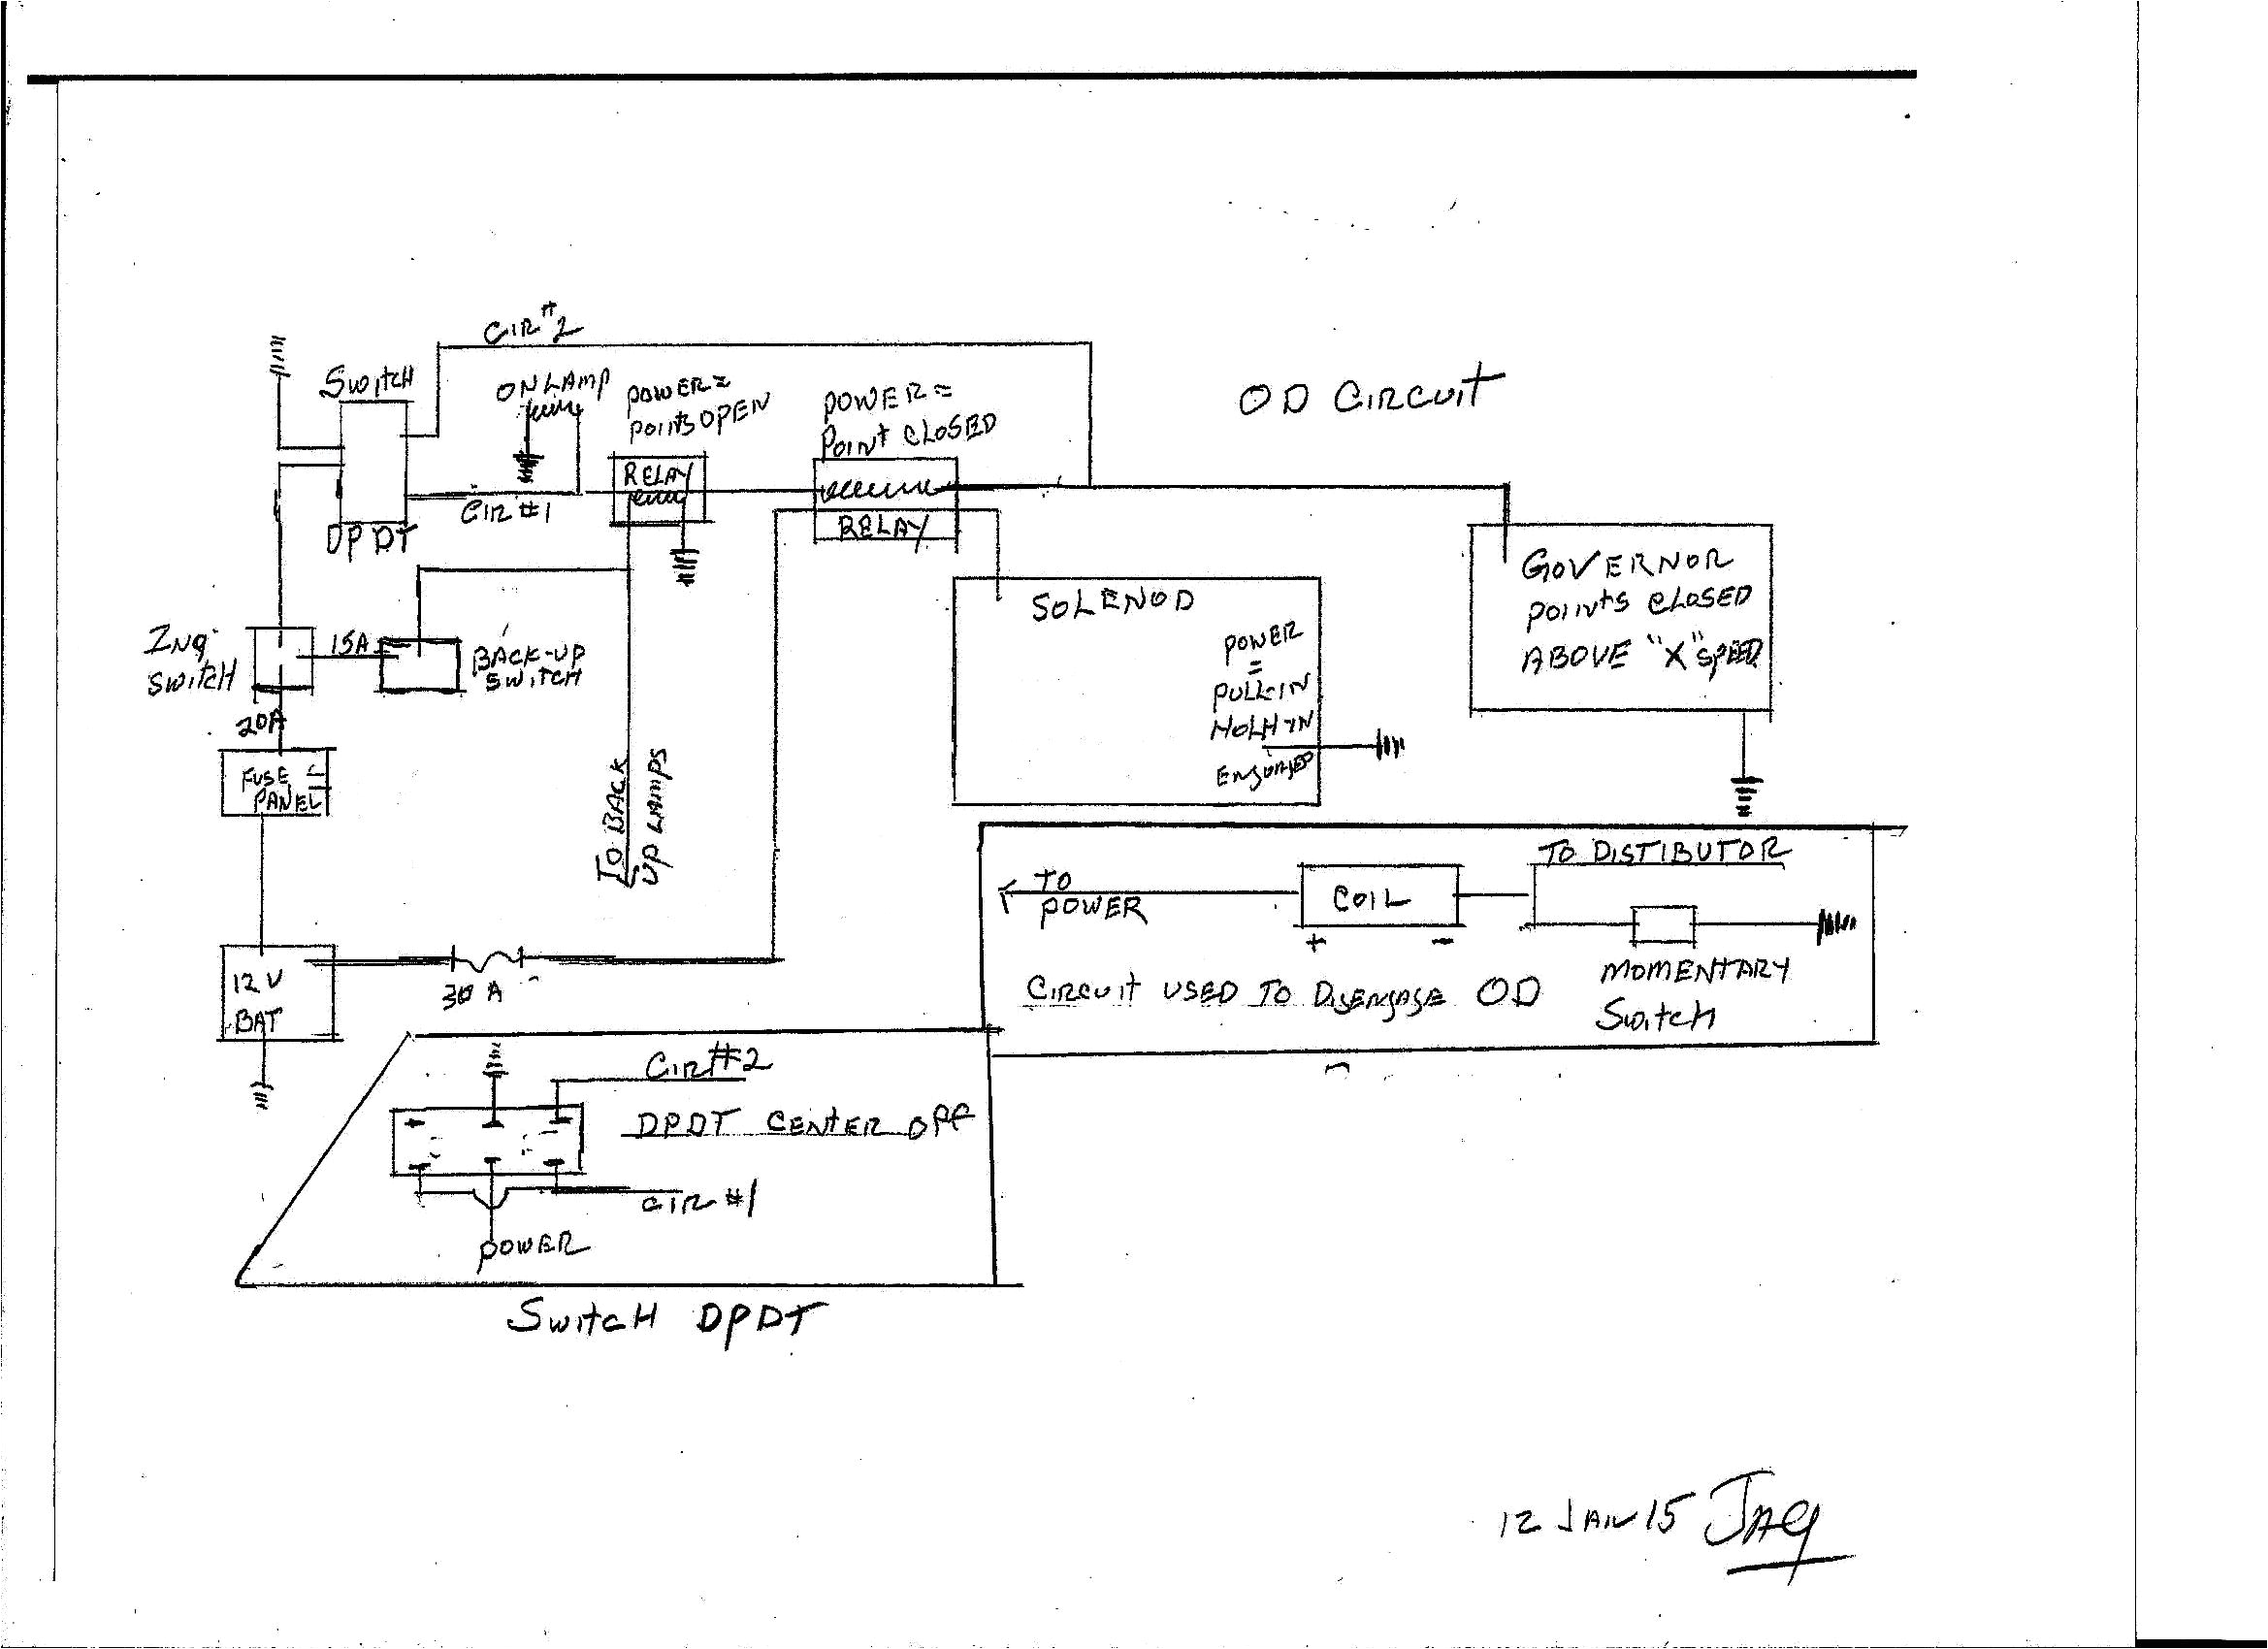 CIR #2
SWITCH
ON LAMP
POWER =
POINTS OPEN
POWER =
POINT CLOSED
OD CIRCUIT
RELAY
CIR #1
DPDT
RELAY
GOVERNOR
POINTS CLOSED
ABOVE "X" SPEED
SOLENOD
POWER
=
PULL-IN
HOLH-IN
ENGAGED
ING.
SWITCH
15A
BACK-UP
SWITCH
20A
FUSE
PANEL
TO BACK
UP LAMPS
12 V
BAT
30 A
TO DISTIBUTOR
TO
POWER
COIL
+ -
MOMENTARY
SWITCH
CIRCUIT USED TO DISENGAGE OD
CIR #2
DPDT CENTER OFF
CIR #1
POWER
SWITCH DPDT
12 JAN 15 JAG